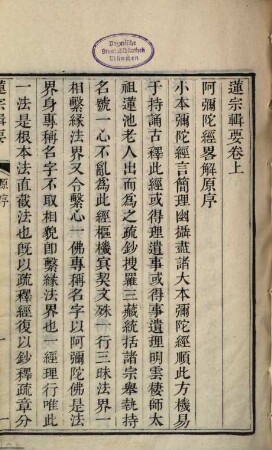 Bayerische
Staatsbibliothek
München
蓮宗輯要卷上
阿彌陀經畧解原序
小本彌陀經言簡理幽攝盡諸大本彌陀經順此方機易
于持誦古釋此經或得理遺事或得事遺理明雲棲師太
祖蓮池老人出而為之疏鈔搜羅三藏統括諸宗舉執持
名號一心不亂為此經樞機實契文殊一行三昧法界一
相繫緣法界又合繫心一佛專稱名字以阿彌陀佛是法
界身專稱名字不取相貌即繫緣法界也一經理行唯此
一法是根本法直截法也既以疏釋經復以鈔釋疏章分
蓮宗輯要
原序
一